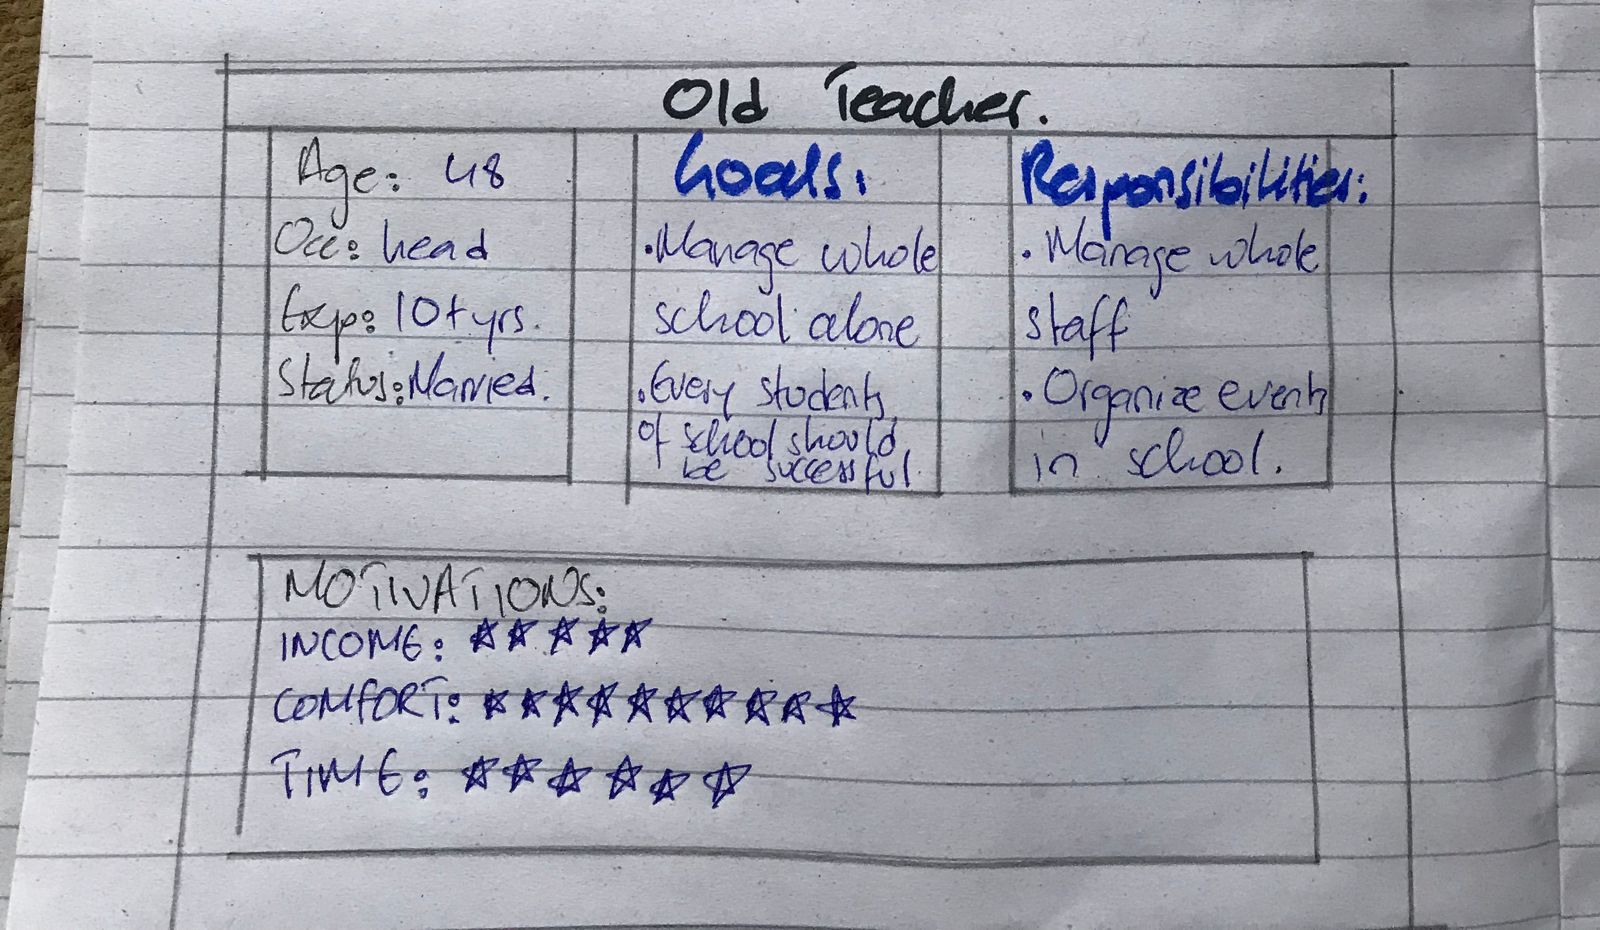 Old Teacher.
Age: 48
Occ: head
Exp: 10+yrs.
Status: Married.
Goals:
• Manage whole
school alone
• Every students
of school should
be successful
Responsibilities:
• Manage whole
staff
• Organize events
in school.
MOTIVATIONS:
INCOME: ☆☆☆☆☆
COMFORT: ☆☆☆☆☆☆☆☆☆☆
TIME: ☆☆☆☆☆☆